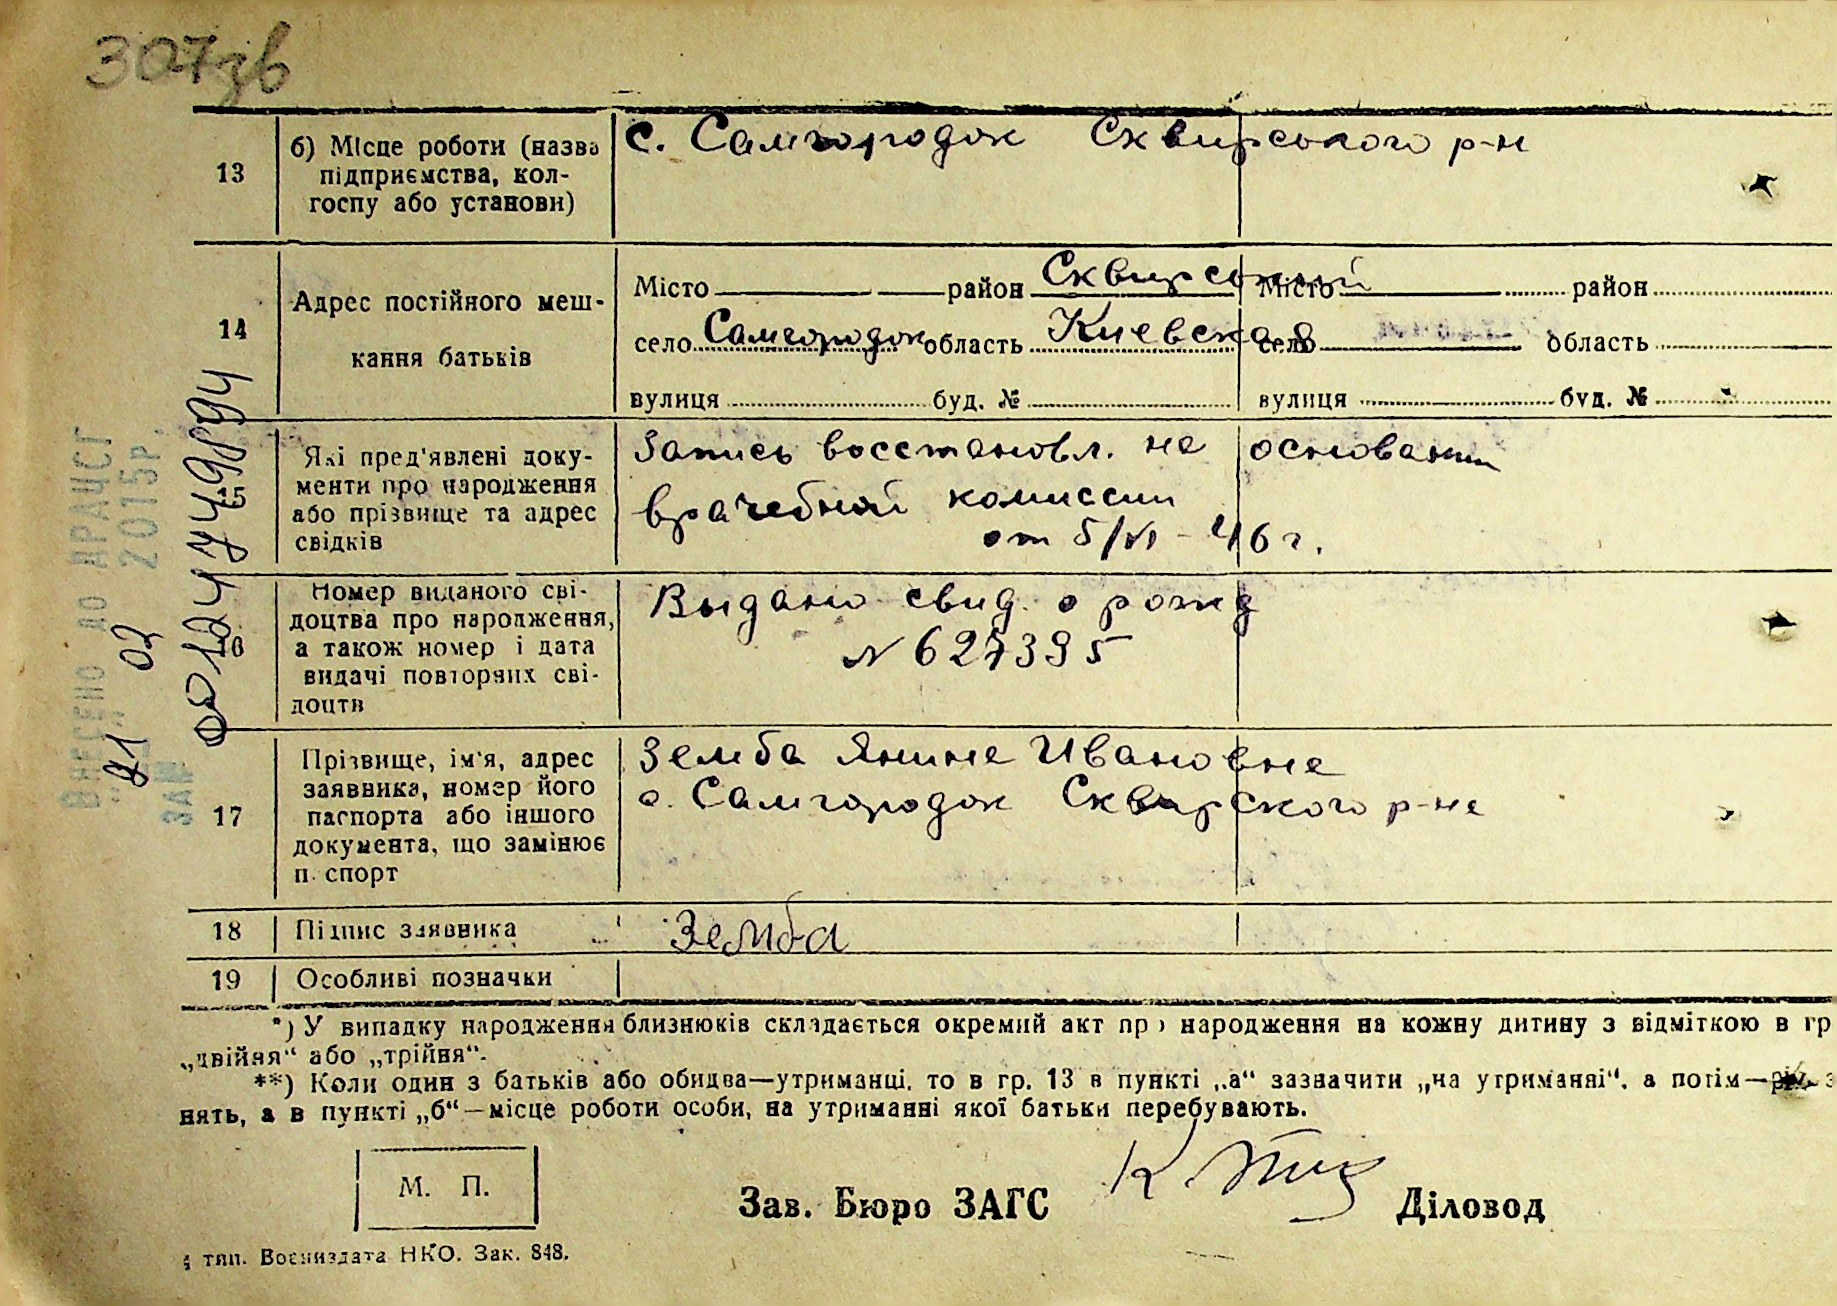 307зв
13 б) Місце роботи (назва
підприємства, кол-
госпу або установи)
с. Самгородок Сквирського р-н
14 Адрес постійного меш-
кання батьків
Місто район Сквирський Місто район
село Самгородок область Киевская село область
вулиця буд. № вулиця буд. №
15 Які пред'явлені доку-
менти про народження
або прізвище та адрес
свідків
Запись восстановл. на основании
врачебной комиссии
от 5/VI - 46 г.
16 Номер виданого сві-
доцтва про народження,
а також номер і дата
видачі повторних сві-
доцтв
Выдано свид. о рожд
N 627395
17 Прізвище, ім'я, адрес
заявника, номер його
паспорта або іншого
документа, що замінює
п спорт
Земба Янина Ивановна
с. Самгородок Сквирского р-на
18 Підпис заявника Земба
19 Особливі позначки
*) У випадку народження близнюків складається окремий акт про народження на кожну дитину з відміткою в гр
„двійня“ або „трійня“.
**) Коли один з батьків або обидва—утриманці, то в гр. 13 в пункті „а“ зазначити „на утриманні“, а потім—рід з
нять, а в пункті „б“—місце роботи особи, на утриманні якої батьки перебувають.
М. П.
Зав. Бюро ЗАГС Діловод
тип. Воениздата НКО. Зак. 848.
ВНЕСЕНО ДО ДРАЦСГ
"21 02 2015р.
ЗА №